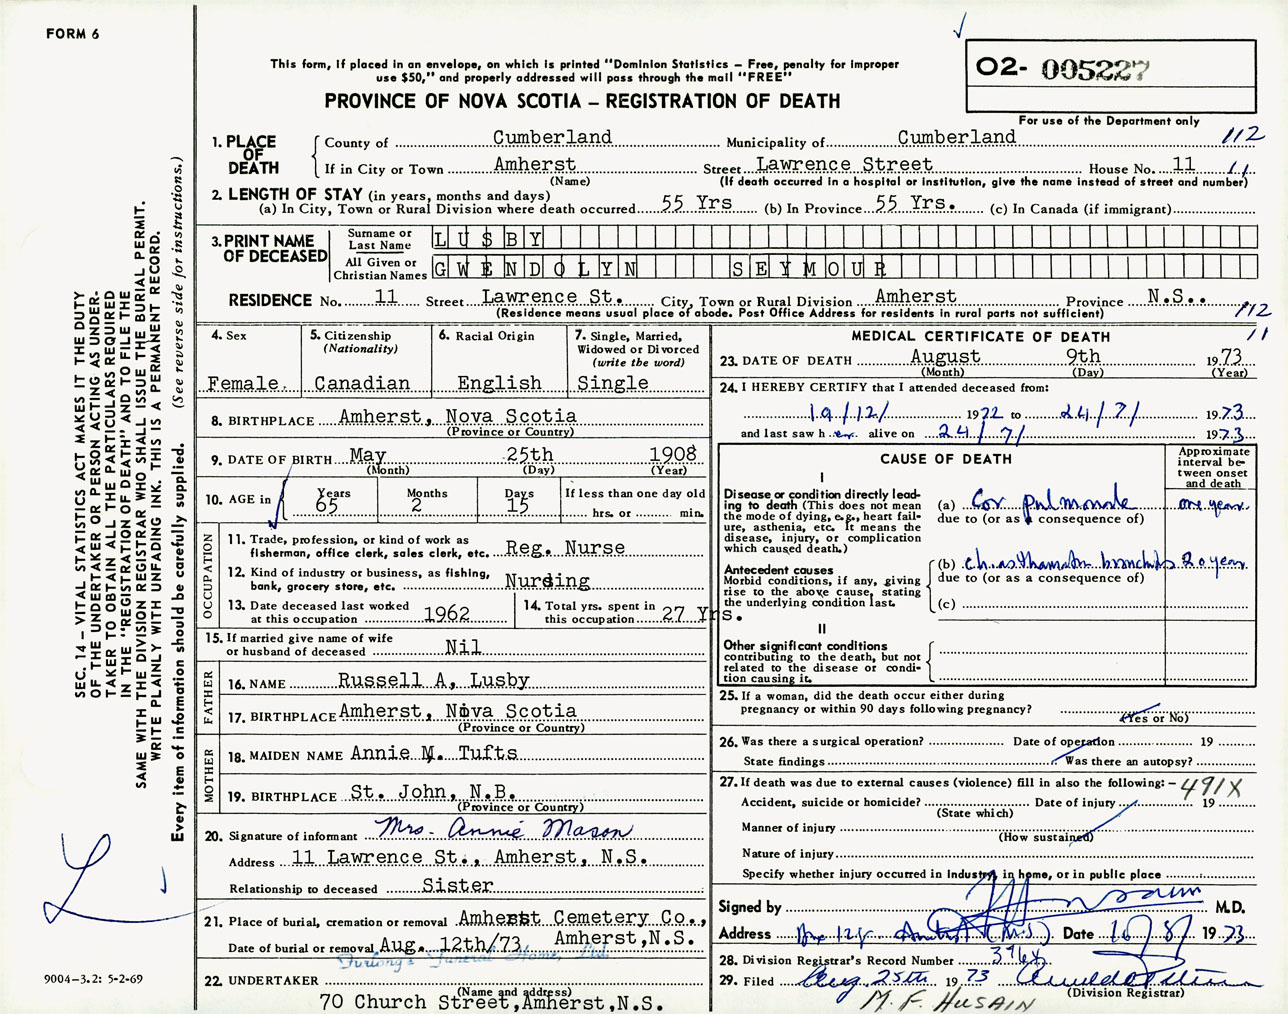 FORM 6
This form, if placed in an envelope, on which is printed "Dominion Statistics – Free, penalty for improper
use $50," and properly addressed will pass through the mail "FREE"
PROVINCE OF NOVA SCOTIA – REGISTRATION OF DEATH
02- 005227
For use of the Department only
SEC. 14 – VITAL STATISTICS ACT MAKES IT THE DUTY
OF THE UNDERTAKER OR PERSON ACTING AS UNDER-
TAKER TO OBTAIN ALL THE PARTICULARS REQUIRED
IN THE "REGISTRATION OF DEATH" AND TO FILE THE
SAME WITH THE DIVISION REGISTRAR WHO SHALL ISSUE THE BURIAL PERMIT.
WRITE PLAINLY WITH UNFADING INK. THIS IS A PERMANENT RECORD.
Every item of information should be carefully supplied. (See reverse side for instructions.)
1. PLACE OF DEATH County of Cumberland Municipality of Cumberland 112
If in City or Town Amherst Street Lawrence Street House No. 11 11
(Name) (If death occurred in a hospital or institution, give the name instead of street and number)
2. LENGTH OF STAY (in years, months and days)
(a) In City, Town or Rural Division where death occurred 55 Yrs (b) In Province 55 Yrs. (c) In Canada (if immigrant)
3. PRINT NAME OF DECEASED Surname or Last Name LUSBY
All Given or Christian Names GWENDOLYN SEYMOUR
RESIDENCE No. 11 Street Lawrence St. City, Town or Rural Division Amherst Province N.S.. 112
(Residence means usual place of abode. Post Office Address for residents in rural parts not sufficient) 11
4. Sex Female.
5. Citizenship (Nationality) Canadian
6. Racial Origin English
7. Single, Married, Widowed or Divorced (write the word) Single
8. BIRTHPLACE Amherst, Nova Scotia
(Province or Country)
9. DATE OF BIRTH May 25th 1908
(Month) (Day) (Year)
10. AGE in Years 65 Months 2 Days 15 If less than one day old hrs. or min.
OCCUPATION
11. Trade, profession, or kind of work as
fisherman, office clerk, sales clerk, etc. Reg. Nurse
12. Kind of industry or business, as fishing,
bank, grocery store, etc. Nursing
13. Date deceased last worked at this occupation 1962
14. Total yrs. spent in this occupation 27 Yrs.
15. If married give name of wife
or husband of deceased Nil
FATHER
16. NAME Russell A, Lusby
17. BIRTHPLACE Amherst, Nova Scotia
(Province or Country)
MOTHER
18. MAIDEN NAME Annie M. Tufts
19. BIRTHPLACE St. John, N.B.
(Province or Country)
20. Signature of informant Mrs. Annie Mason
Address 11 Lawrence St., Amherst, N.S.
Relationship to deceased Sister
21. Place of burial, cremation or removal Amherst Cemetery Co.,
Date of burial or removal Aug. 12th/73 Amherst, N.S.
Furlong's Funeral Home, Ltd.
22. UNDERTAKER
(Name and address)
70 Church Street, Amherst, N.S.
MEDICAL CERTIFICATE OF DEATH
23. DATE OF DEATH August 9th 1973
(Month) (Day) (Year)
24. I HEREBY CERTIFY that I attended deceased from:
19/12/ 1972 to 24/7/ 1973
and last saw her alive on 24/7/ 1973
CAUSE OF DEATH
Approximate interval between onset and death
I
Disease or condition directly lead-
ing to death (This does not mean
the mode of dying, e.g., heart fail-
ure, asthenia, etc. It means the
disease, injury, or complication
which caused death.)
(a) Cor pulmonale one year.
due to (or as a consequence of)
Antecedent causes
Morbid conditions, if any, giving
rise to the above cause, stating
the underlying condition last.
(b) ch. asthmatic bronchitis 20 year
due to (or as a consequence of)
(c)
II
Other significant conditions
contributing to the death, but not
related to the disease or condi-
tion causing it.
25. If a woman, did the death occur either during
pregnancy or within 90 days following pregnancy?
(Yes or No)
26. Was there a surgical operation? Date of operation 19
State findings Was there an autopsy?
27. If death was due to external causes (violence) fill in also the following: – 491X
Accident, suicide or homicide? Date of injury 19
(State which)
Manner of injury
(How sustained)
Nature of injury
Specify whether injury occurred in Industry, in home, or in public place
Signed by M.D.
Address Box 129 Amherst (N.S.) Date 10/8/ 1973
28. Division Registrar's Record Number
29. Filed Aug 25th 1973
(Division Registrar)
M. F. HUSAIN
9004–3.2: 5-2-69